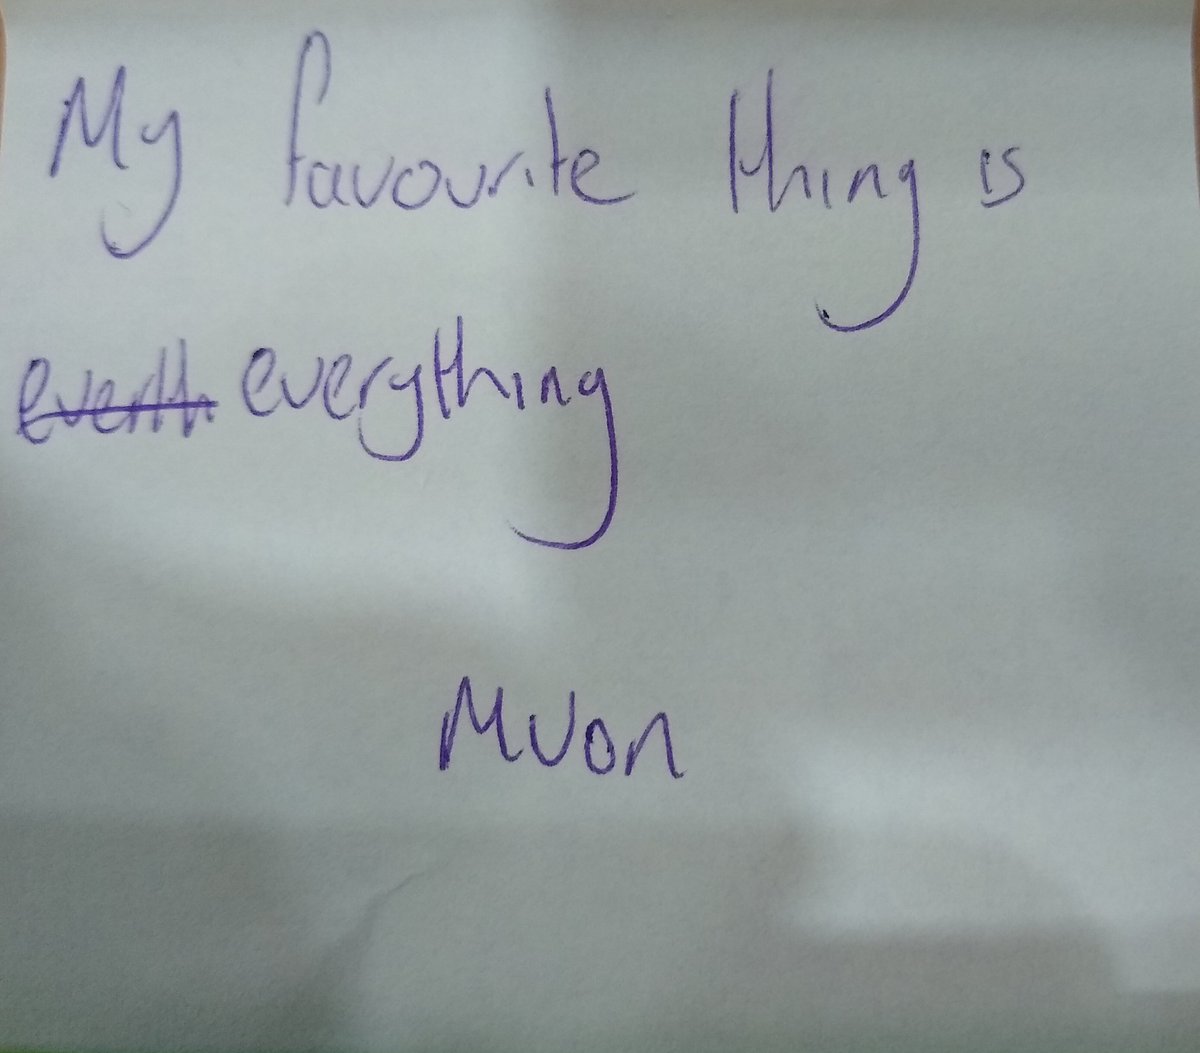 My favourite thing is
everth everything
Muon